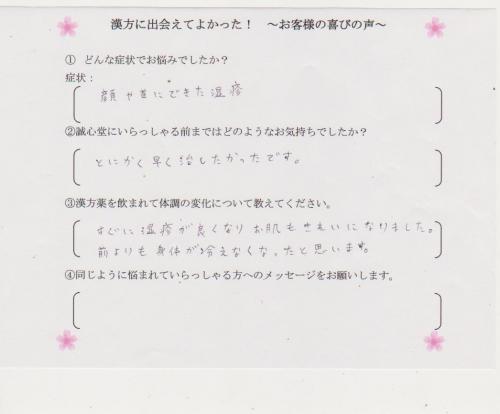 漢方に出会えてよかった！ ～お客様の喜びの声～
① どんな症状でお悩みでしたか？
症状：
顔や首にできた湿疹
②誠心堂にいらっしゃる前まではどのようなお気持ちでしたか？
とにかく早く治したかったです。
③漢方薬を飲まれて体調の変化について教えてください。
すぐに湿疹が良くなりお肌もきれいになりました。
前よりも身体が冷えなくなったと思います。
④同じように悩まれていらっしゃる方へのメッセージをお願いします。